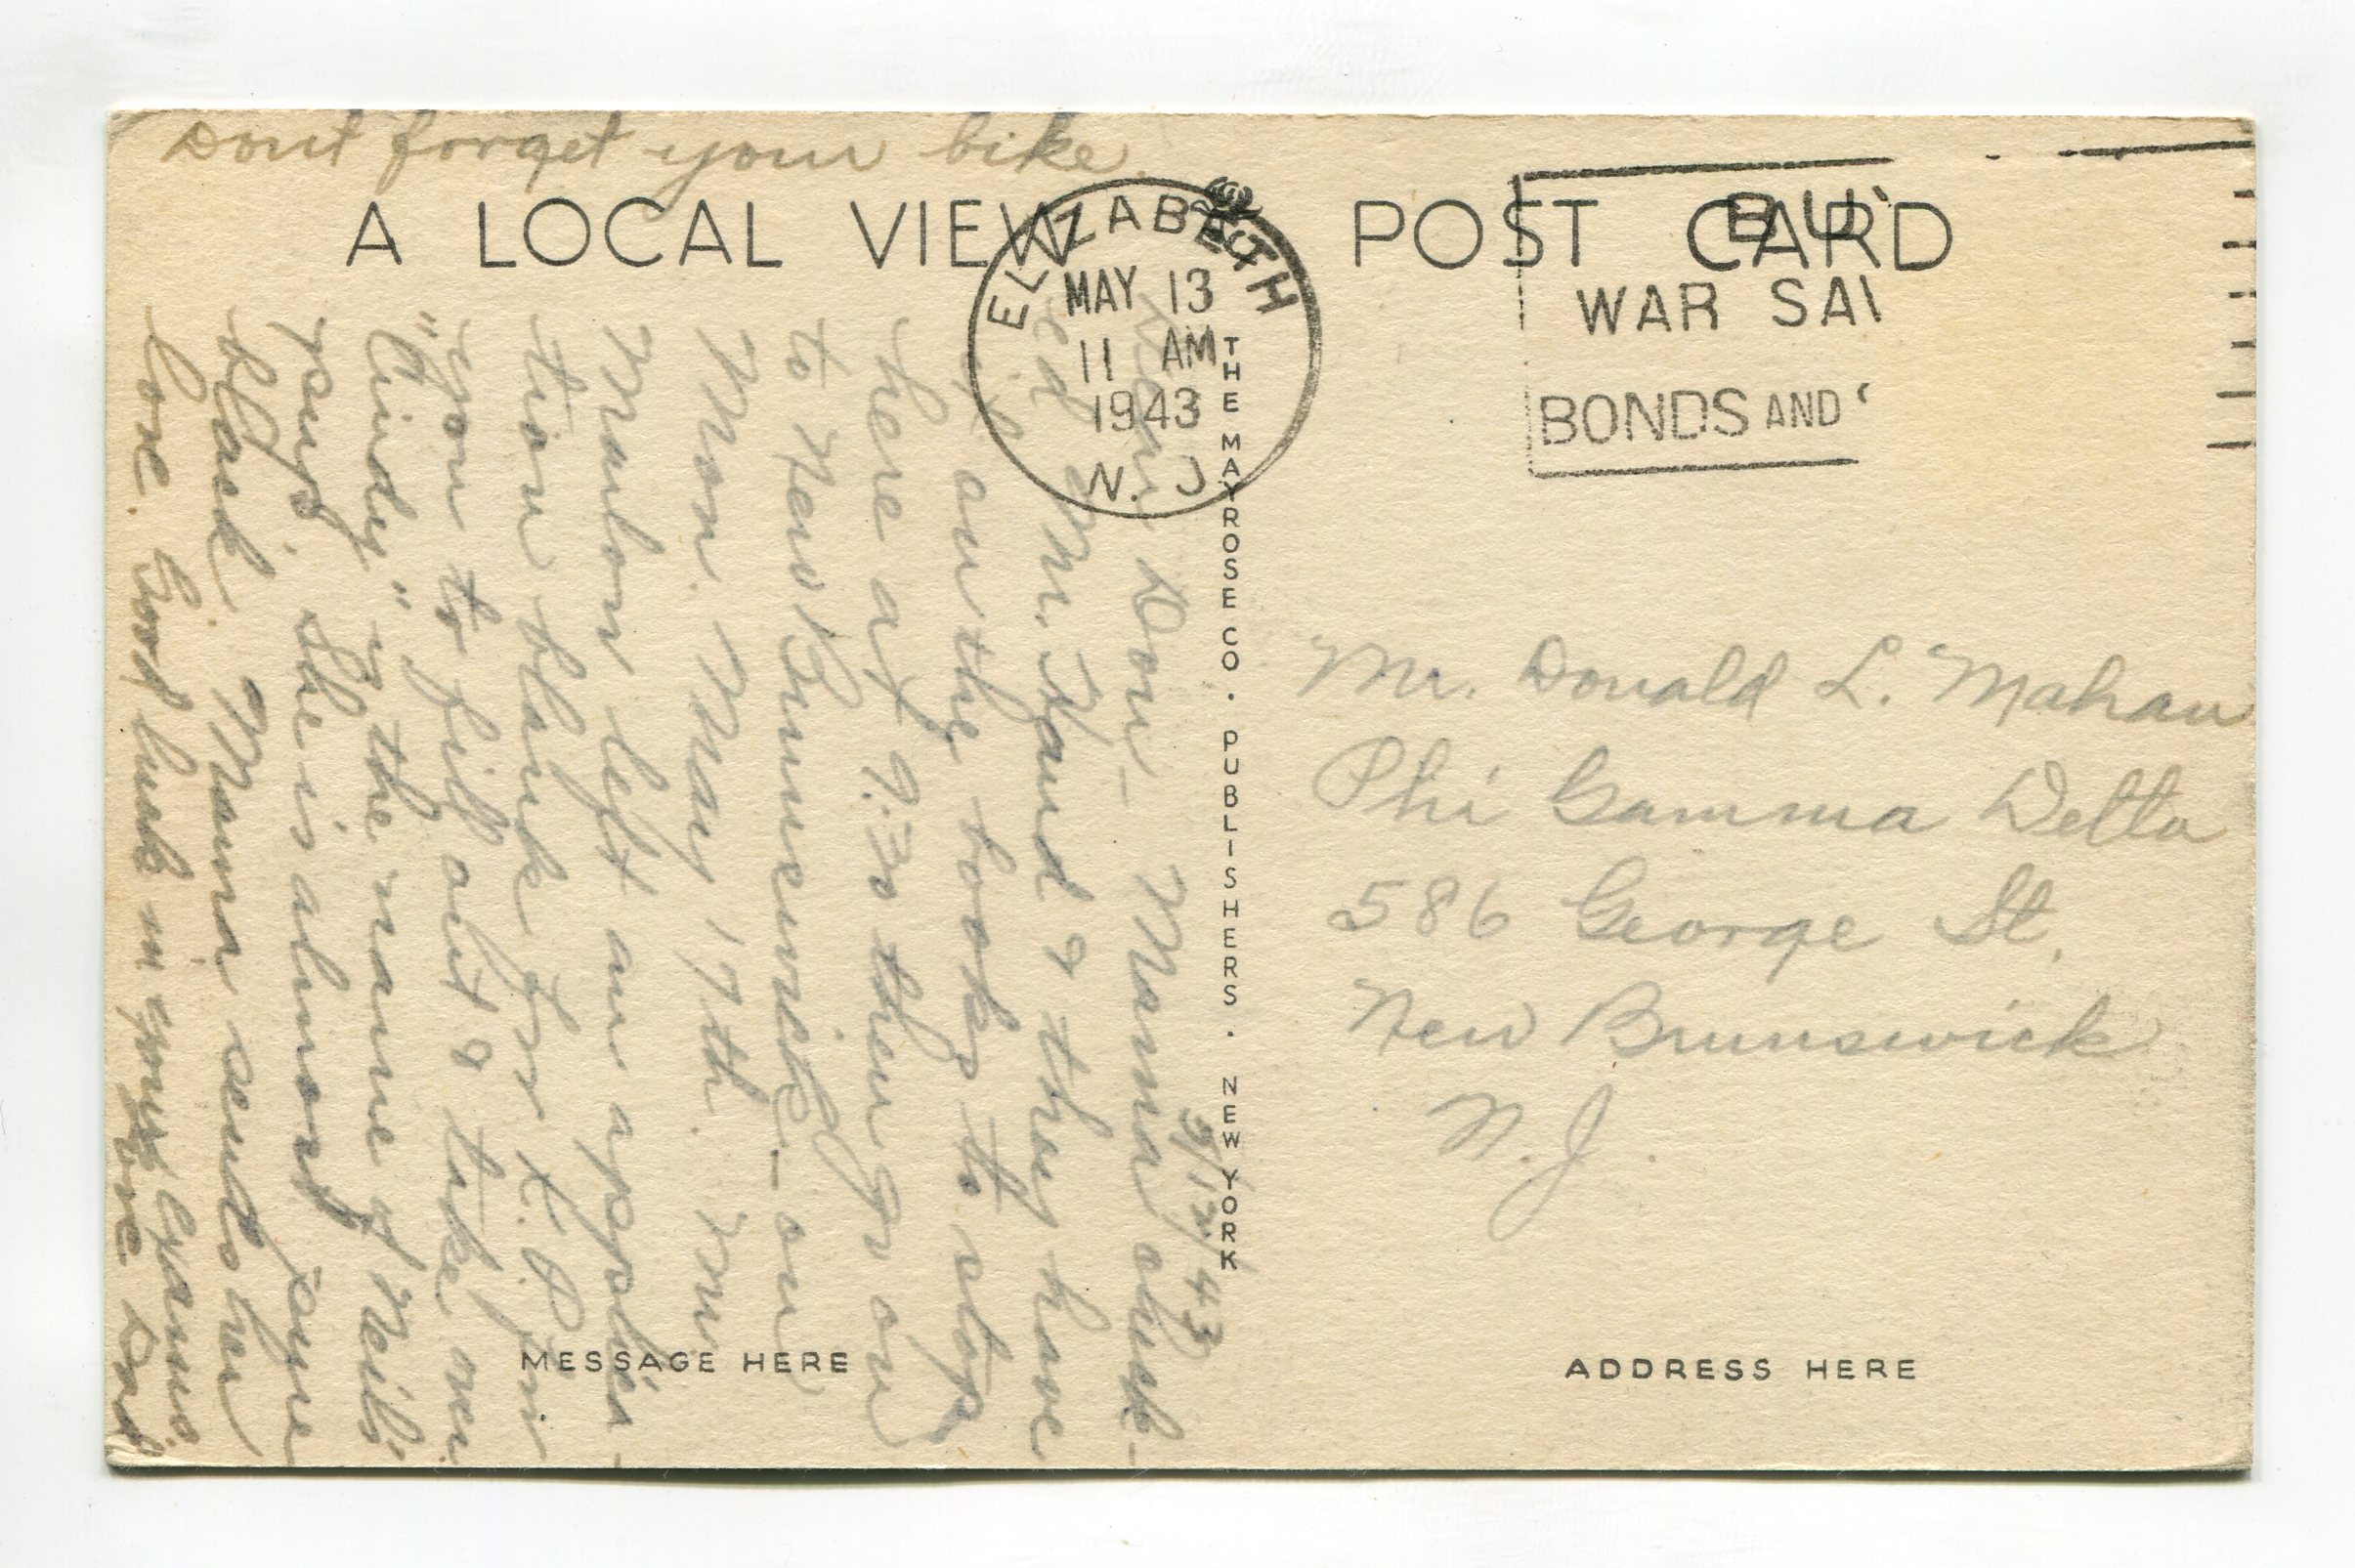 Dont forget your bike.
A LOCAL VIEW
POST CARD
ELIZABETH
MAY 13
11 AM
1943
N. J
BU
WAR SAV
BONDS AND
THE MAYROSE CO. PUBLISHERS. NEW YORK
5/12/43
Dear Don - Mama check-
ed Mr. Hand & they have
all the books to stop
here at 9:30 then go on
to New Brunswick - on
Mon. May 17th. Mr
Maulon left an applica-
tion blank for X. P. for
you to fill out & take over
"Cindy" is the name of Neil's
pup. She is almost pure
black. Mama sends her
love. Good luck in your exams.
Love Dad
Mr. Donald L. Mahan
Phi Gamma Delta
586 George St.
New Brunswick
N. J.
MESSAGE HERE
ADDRESS HERE